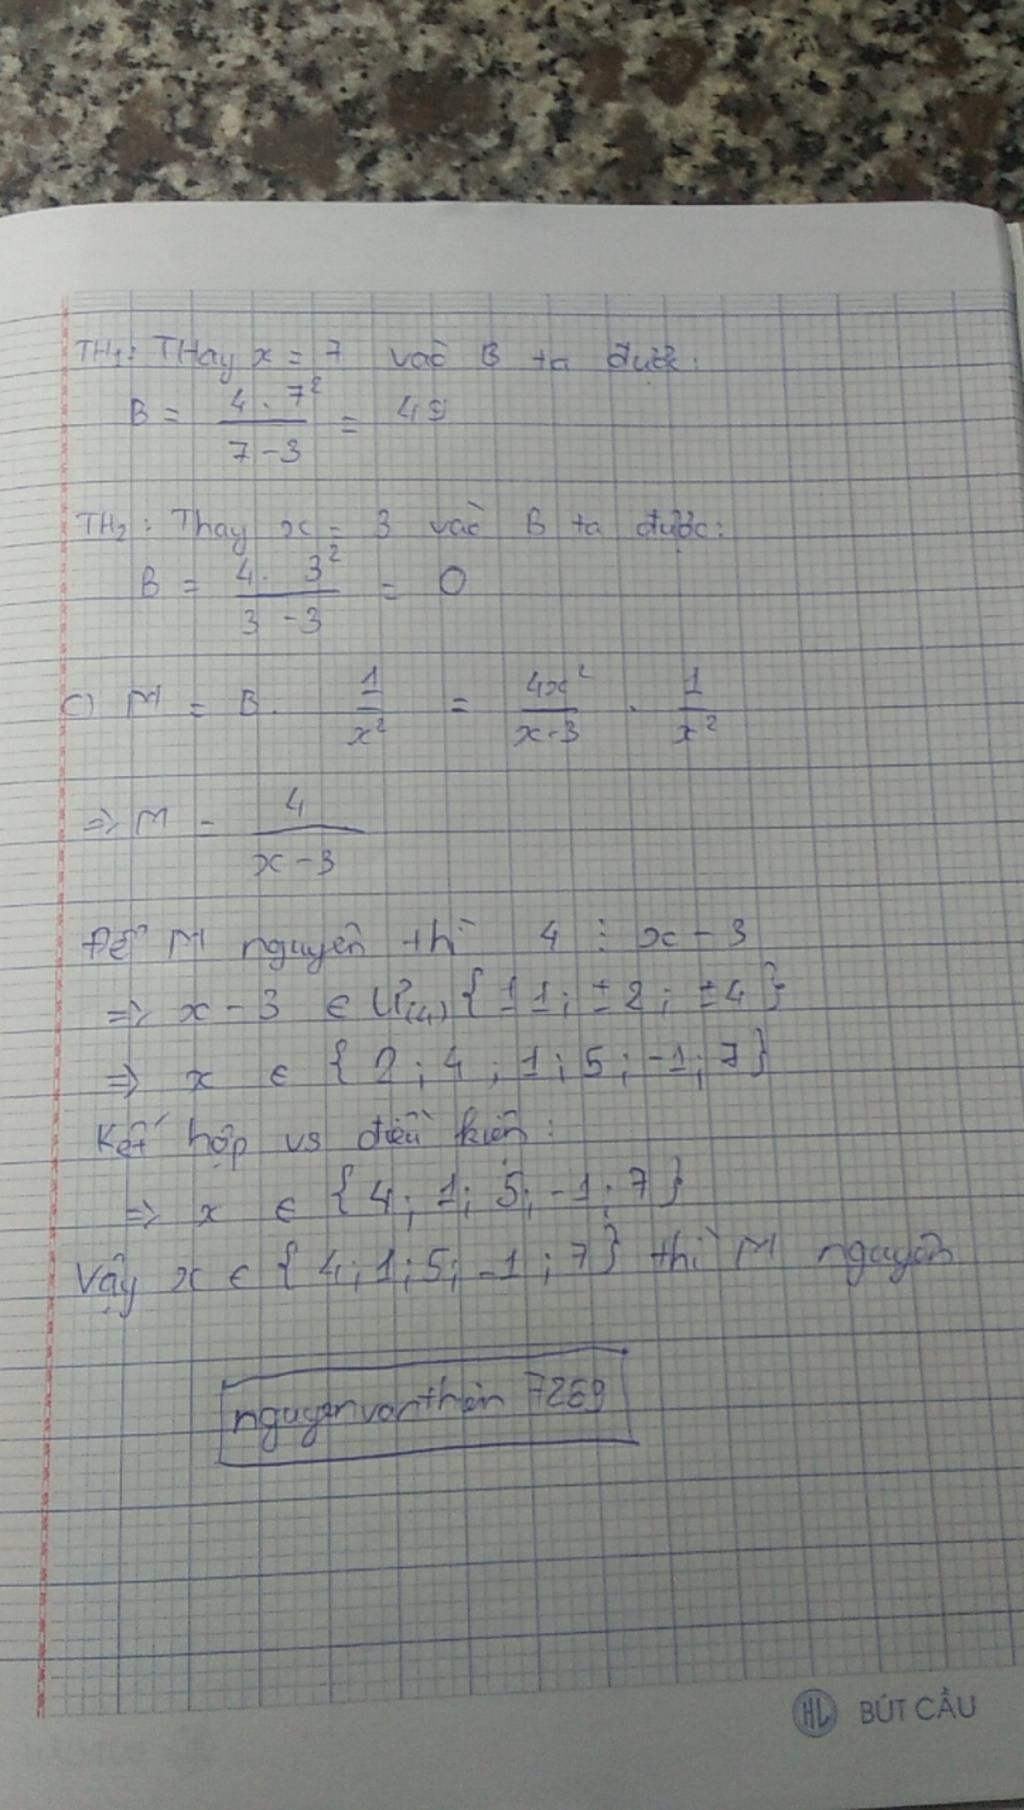 TH₁: THay x = 7 vào B ta được:
B = \frac{4 . 7²}{7 - 3} = 49
TH₂: Thay x = 3 vào B ta được:
B = \frac{4 . 3²}{3 - 3} = 0
c) M = B . \frac{1}{x²} = \frac{4x²}{x - 3} . \frac{1}{x²}
=> M = \frac{4}{x - 3}
Để M nguyên thì 4 ⋮ x - 3
=> x - 3 ∈ Ư(4) {±1; ±2; ±4}
=> x ∈ {2; 4; 1; 5; -1; 7}
Kết hợp vs điều kiện:
=> x ∈ {4; 1; 5; -1; 7}
Vậy x ∈ {4; 1; 5; -1; 7} thì M nguyên
nguyenvanthien 7269
HL BÚT CẦU